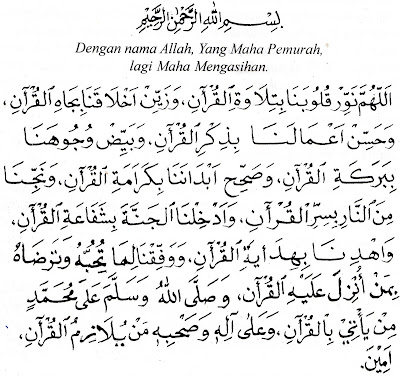 بِسْمِ اللهِ الرَّحْمٰنِ الرَّحِيْمِ
Dengan nama Allah, Yang Maha Pemurah,
lagi Maha Mengasihan.
اَللّٰهُمَّ نَوِّرْ قُلُوْبَنَا بِتِلَاوَةِ الْقُرْآنِ، وَزَيِّنْ اَخْلَاقَنَا بِجَاهِ الْقُرْآنِ،
وَحَسِّنْ اَعْمَالَنَا بِذِكْرِ الْقُرْآنِ، وَبَيِّضْ وُجُوْهَنَا
بِبَرَكَةِ الْقُرْآنِ، وَصَحِّحْ اَبْدَانَنَا بِكَرَامَةِ الْقُرْآنِ، وَنَجِّنَا
مِنَ النَّارِ بِسِرِّ الْقُرْآنِ، وَاَدْخِلْنَا الْجَنَّةَ بِشَفَاعَةِ الْقُرْآنِ،
وَاهْدِنَا بِهِدَايَةِ الْقُرْآنِ، وَوَفِّقْنَا لِمَا تُحِبُّهُ وَتَرْضَاهُ
بِمَنْ اُنْزِلَ عَلَيْهِ الْقُرْآنُ، وَصَلَّى اللهُ وَسَلَّمَ عَلَى مُحَمَّدٍ
مِنْ يَأْتِيْ بِالْقُرْآنِ، وَعَلَى آلِهِ وَصَحْبِهِ مَنْ يُلَازِمُ الْقُرْآنَ،
اٰمِيْنَ.